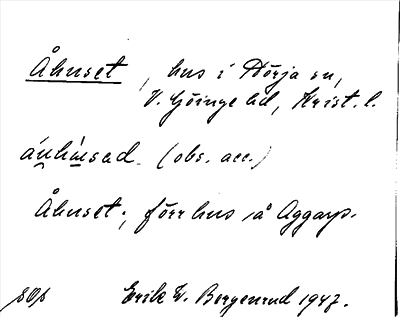 Åhuset, hus i Hörja sn,
V. Göinge hd, Krist. l.
áu̯hu̯sad. (obs. acc.)
Åhuset; förr hus å Aggarp.
Erik W. Bergenrud 1947.